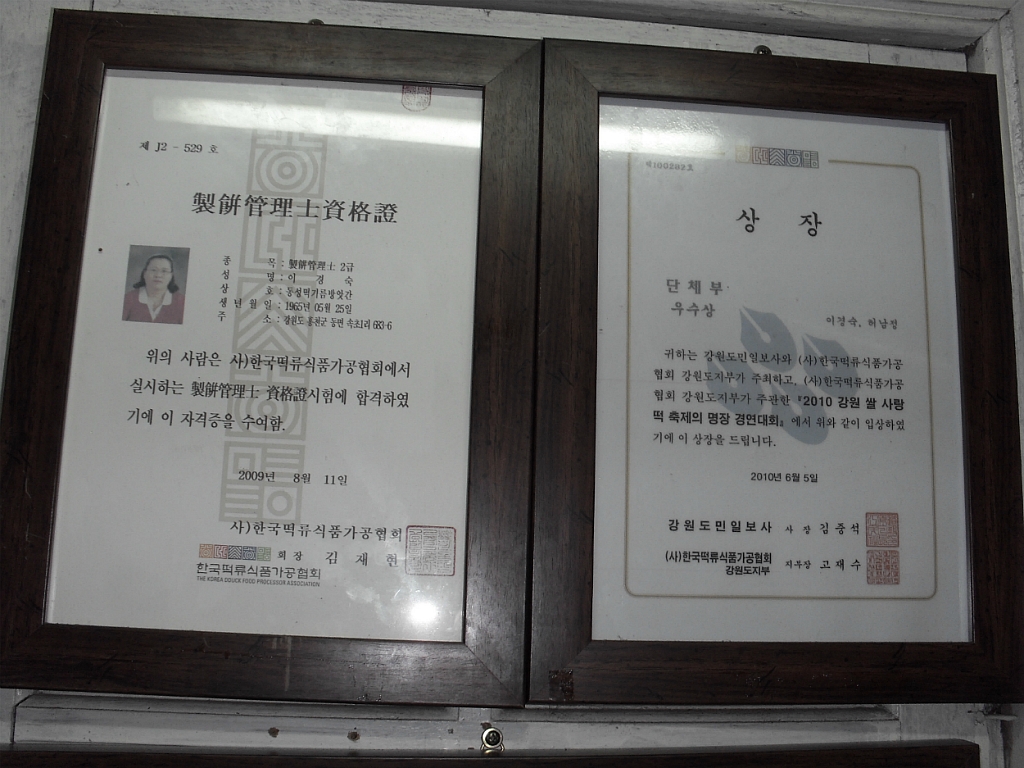 제 J2 - 529 호
製餠管理士資格證
종 목 : 製餠管理士 2급
성 명 : 이 경 숙
상 호 : 동성떡기름방앗간
생 년 월 일 : 1965년 05월 25일
주 소 : 강원도 홍천군 동면 속초1리 683-6
위의 사람은 사)한국떡류식품가공협회에서
실시하는 製餠管理士 資格證시험에 합격하였
기에 이 자격증을 수여함.
2009년 8월 11일
사)한국떡류식품가공협회
회장 김 재 현
한국떡류식품가공협회
THE KOREA DDUCK FOOD PROCESSOR ASSOCIATION
제100202호
상 장
단체부
우수상
이경숙, 허남정
귀하는 강원도민일보사와 (사)한국떡류식품가공
협회 강원도지부가 주최하고, (사)한국떡류식품가공
협회 강원도지부가 주관한 『2010 강원 쌀 사랑
떡 축제의 명장 경연대회』에서 위와 같이 입상하였
기에 이 상장을 드립니다.
2010년 6월 5일
강원도민일보사 사 장 김 중 석
(사)한국떡류식품가공협회
강원도지부 지부장 고 재 수